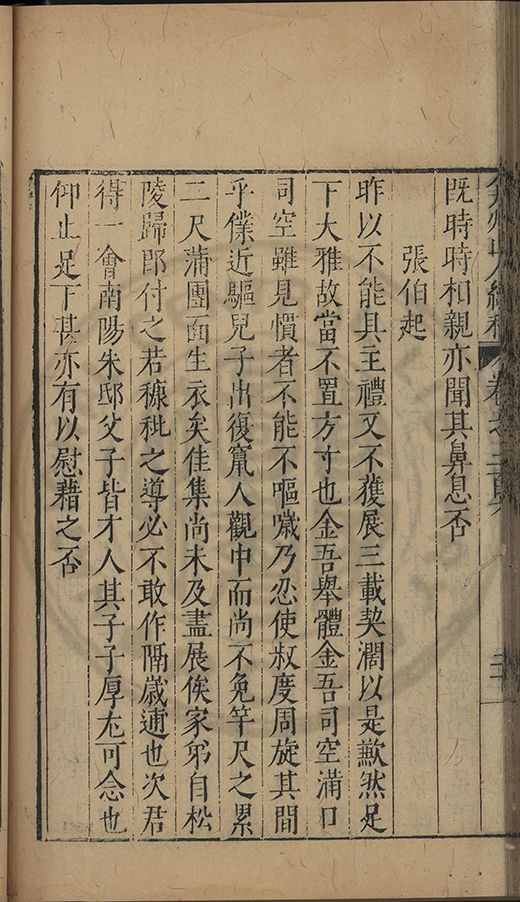 弇州山人續稿 卷之二百
既時時相親亦聞其鼻息否
張伯起
昨以不能具主禮又不獲展三載契濶以是歉然足
下大雅故當不置方寸也金吾舉體金吾司空滿口
司空雖見慣者不能不嘔噦乃忍使叔度周旋其間
乎僕近驅兒子出復竄人觀中而尚不免竿尺之累
二尺蒲團面生衣矣佳集尚未及盡展俟家弟自松
陵歸郎付之若穅秕之導必不敢作隔歲逋也次君
得一會南陽朱邸父子皆才人其子子厚尤可念也
仰止足下甚亦有以慰藉之否